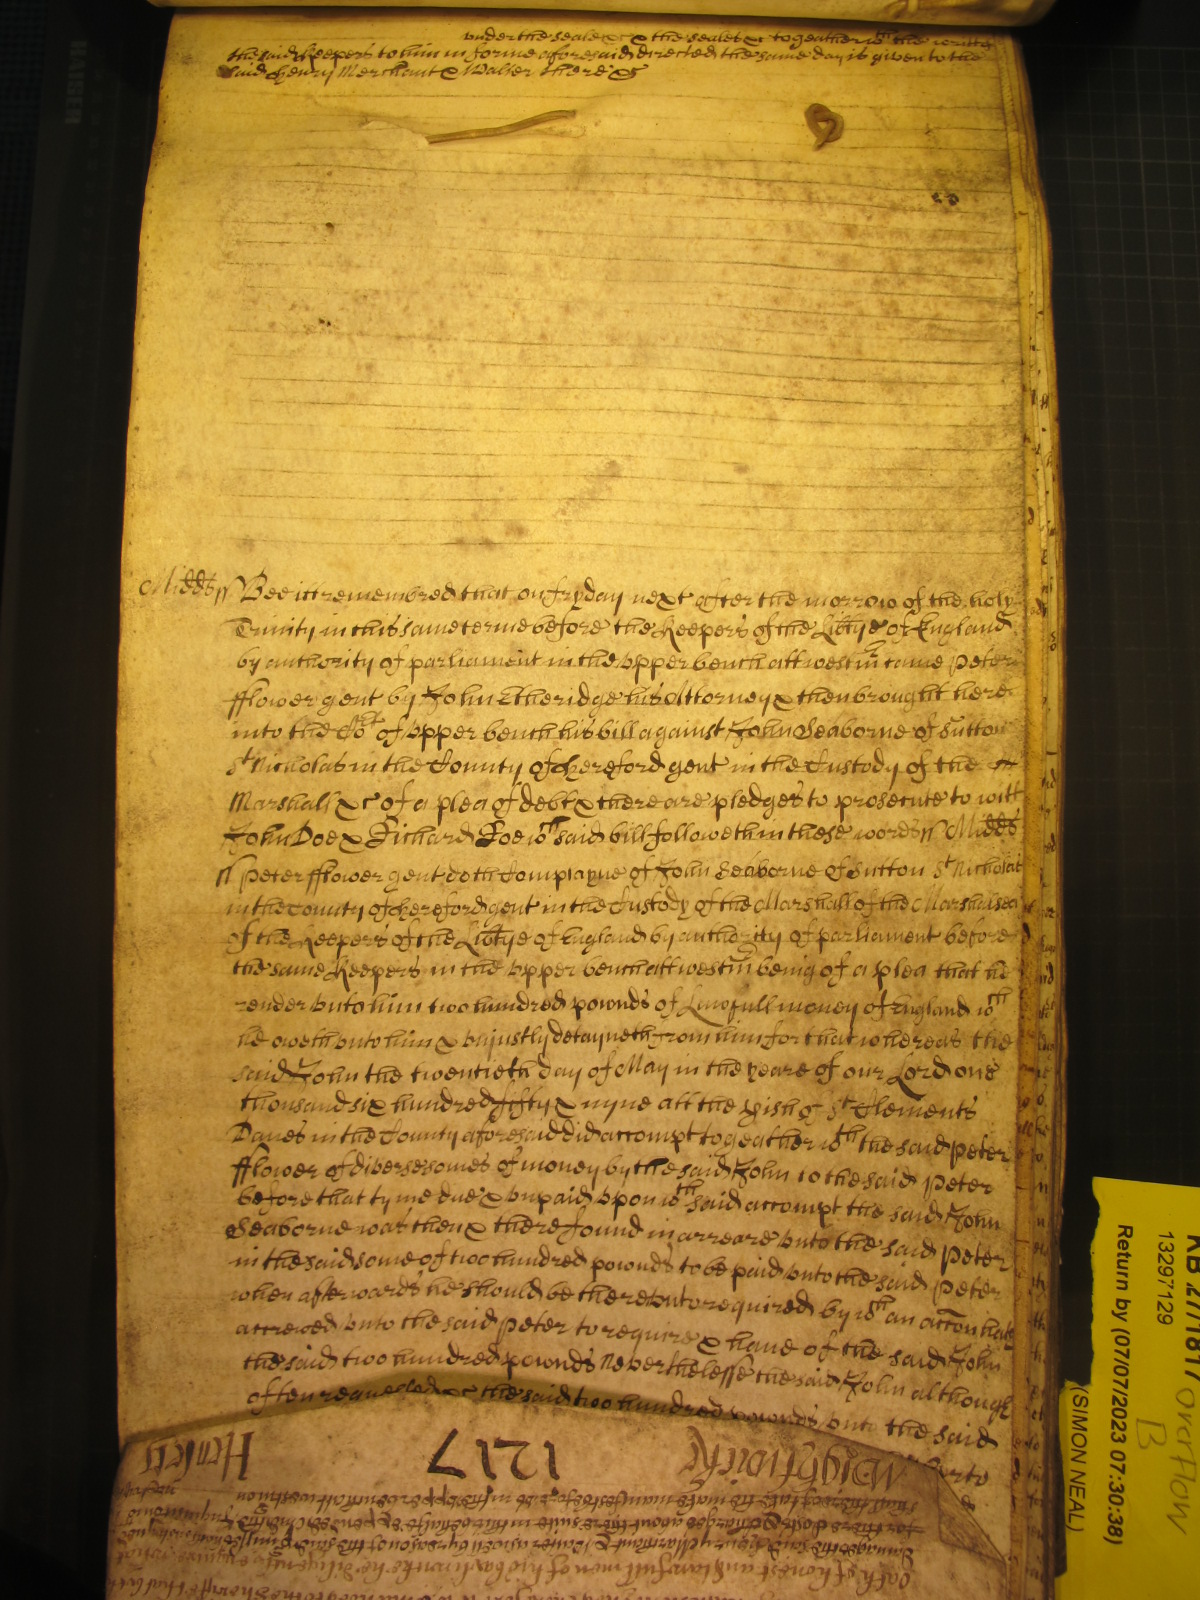 under the seale &c & the seale &c togeather wth the writts
the said keepers to him in forme aforesaid directed the same day is given to the
said Henry Merchant & Walter there &c
Midds ss Bee itt remembred that on fryday next after the morrow of the holy
Trinity in this same terme before the Keepers of the Libtye of England
by authority of parliament in the upper bench att westm came Peter
fflower gent by John Etheridge his Attorney & then brought here
into the Cot of upper bench his bill against John Seaborne of Sutton
St Nicholas in the County of hereford gent in the Custody of the
Marshall &c of a plea of debt & there are pledges to prosecute to witt
John Doe & Richard Roe wth said bill followeth in these words ss Midds
ss Peter fflower gent doth Complayne of John Seaborne of Sutton St Nicholas
in the County of hereford gent in the Custody of the Marshall of the Marshalsea
of the Keepers of the Libtye of England by authority of parliament before
the same Keepers in the upper bench att westm being of a plea that he
render unto him two hundred pownds of Lawfull money of England wch
he oweth unto him & unjustly detayneth from him for that whereas the
said John the twentieth day of May in the yeare of our Lord one
thousand six hundred fifty & nyne att the pish of St Clements
Danes in the County aforesaid did accompt togeather wth the said Peter
fflower of diverse somes of money by the said John to the said Peter
before that tyme due & unpaid upon wch said accompt the said John
Seaborne was then & there found in arreare unto the said Peter
in the said some of two hundred pownds to be paid unto the said Peter
when afterwards he should be thereunto required by wch an accon hath
accrewed unto the said Peter to require & have of the said John
the said two hundred pownds Neverthelesse the said John although
often requested &c the said two hundred pownds unto the said
Wightwicke 1217 Henley
KB 27/1817 overflow
B
13297129
Return by (07/07/2023 07:30:38)
(SIMON NEAL)